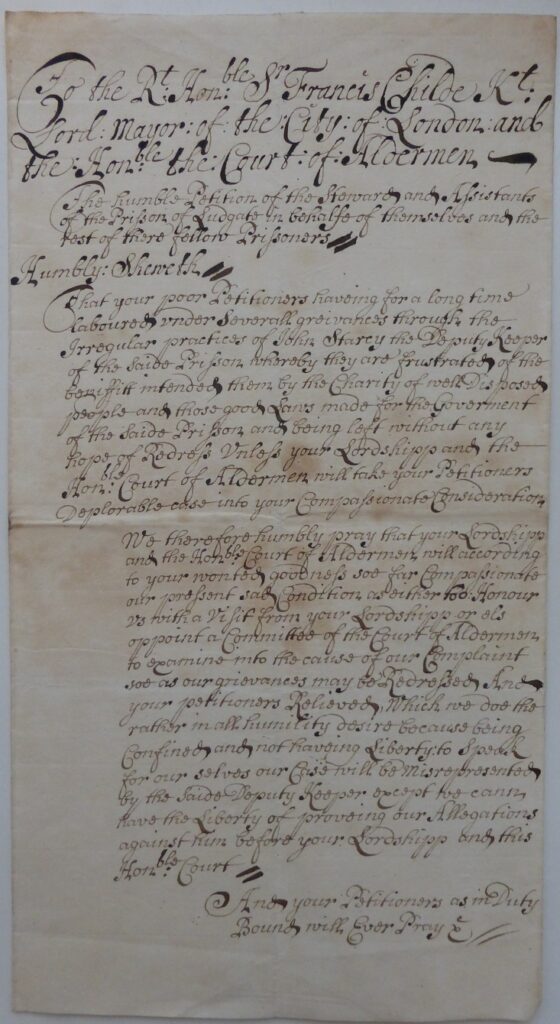 To the Rt. Honble. Sr Francis Childe Kt.
Lord: Mayor: of: the: City: of: London: and
the: Honble. the: Court: of: Aldermen
The humble Petition of the Steward and Assistants
of the Prisson of Ludgate In behalfe of themselves and the
rest of there fellow Prissoners
Humbly: Sheweth
That your poor Petitioners haveing for a long time
laboured under Severall greivances through the
Irregular practices of John Starey the Deputy Keeper
of the Saide Prisson whereby they are frustrated of the
beniffitt intended them by the Charity of well Disposed
people and those good Laws made for the Goverment
of the Saide Prisson and being left without any
hope of Redress Unless your Lordshipp and the
Honble. Court of Aldermen will take your Petitioners
Deplorable case into your Compassionate Consideration
We therefore humbly pray that your Lordshipp
and the Honble. Court of Aldermen will according
to your wonted goodness soe far Compassionate
our pressent sad Condition as either to: Honour
us with a Visit from your Lordshipp or els
oppoint a Committee of the Court of Aldermen
to examine into the cause of our Complaint
soe as our grievances may be Redressed And
your petitioners Relieved, Which we doe the
rather in all humility desire because being
Confined and not haveing Liberty: to Speak
for our selves our Case will be Misrepresented
by the Saide Deputy Keeper except we cann
have the Liberty of proveing our Allegations
against him before your Lordshipp and this
Honble. Court
And your Petitioners as in Duty
Bound will Ever Pray &